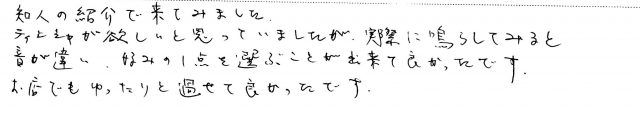 知人の紹介で来てみました.
ティンシャが欲しいと思っていましたが、実際に鳴らしてみると
音が違い、好みの1点を選ぶことが出来て良かったです.
お店でもゆったりと過せて良かったです.